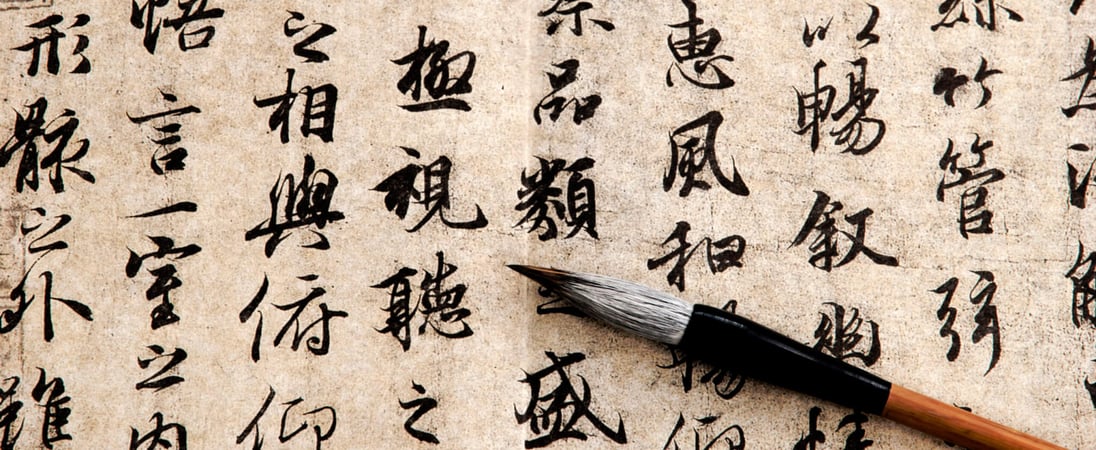 絲竹管弦
以暢叙幽情
惠風和暢仰
察品類盛
極視聽之
之相與俯仰
悟言一室之內
形骸之外雖